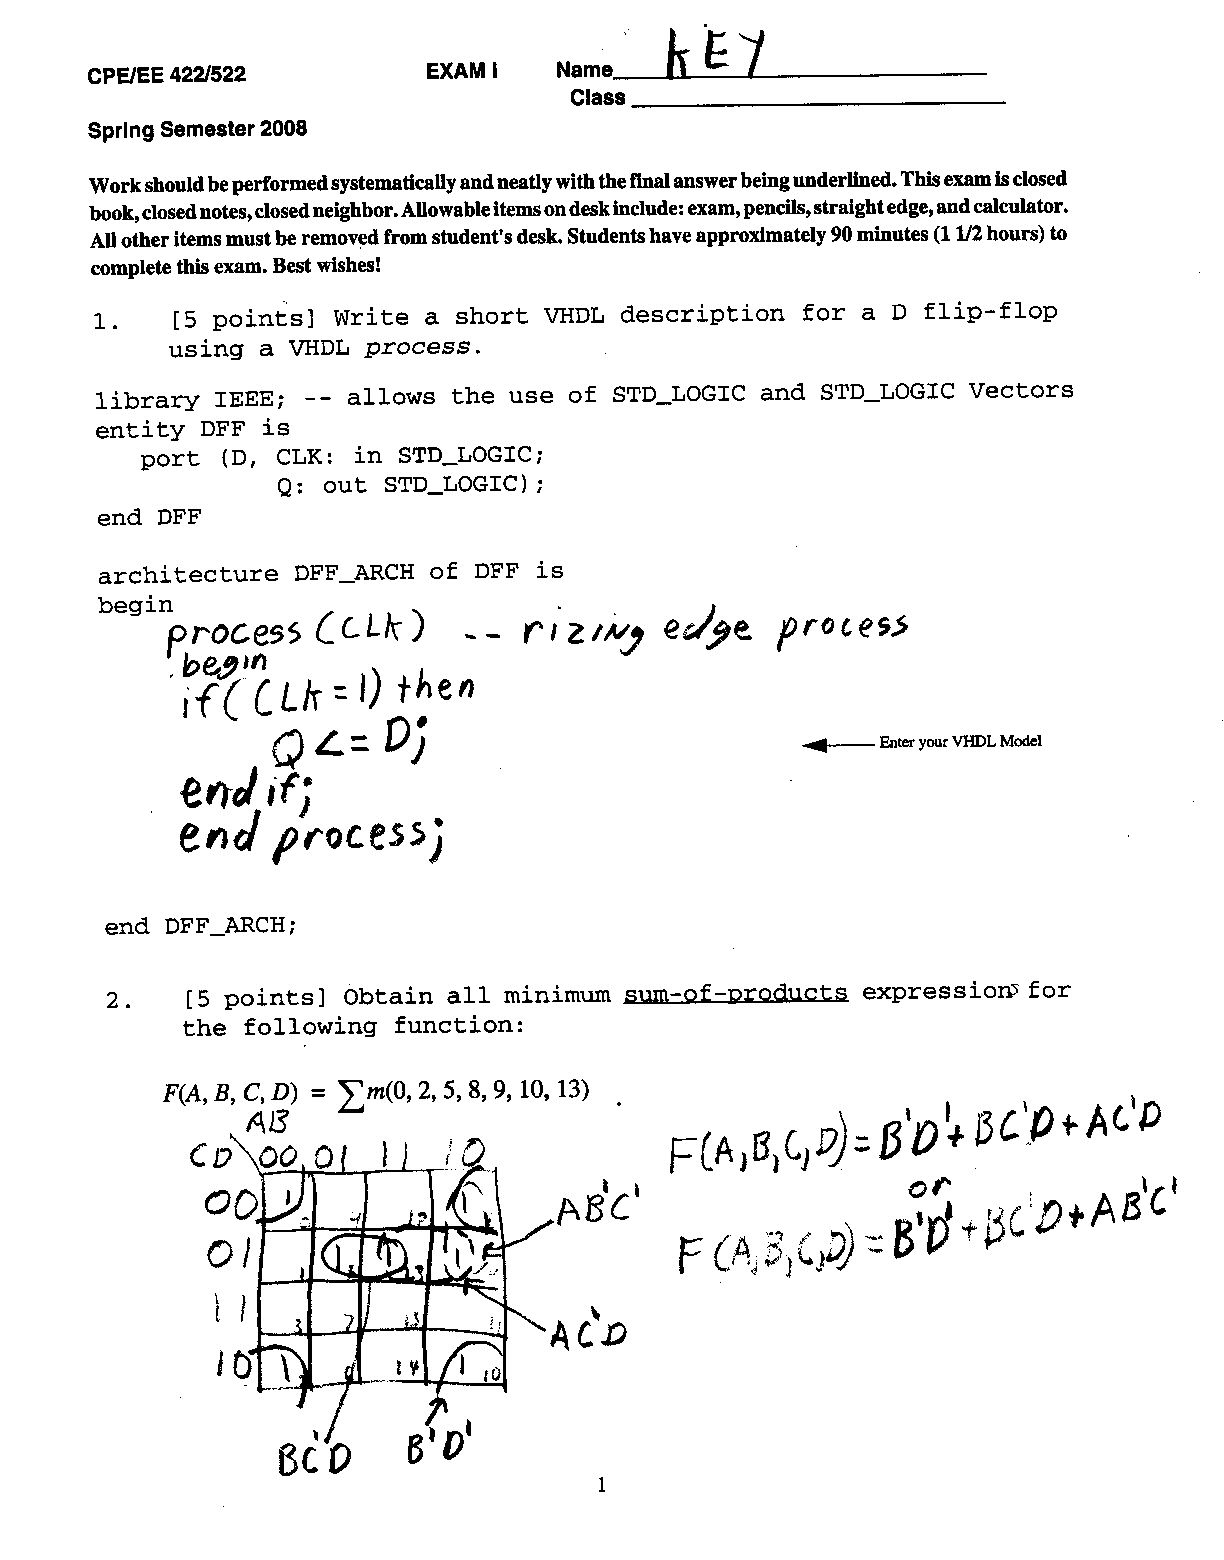 CPE/EE 422/522 EXAM I Name KEY
Class
Spring Semester 2008
Work should be performed systematically and neatly with the final answer being underlined. This exam is closed
book, closed notes, closed neighbor. Allowable items on desk include: exam, pencils, straight edge, and calculator.
All other items must be removed from student's desk. Students have approximately 90 minutes (1 1/2 hours) to
complete this exam. Best wishes!
1. [5 points] Write a short VHDL description for a D flip-flop
using a VHDL process.
library IEEE; -- allows the use of STD_LOGIC and STD_LOGIC Vectors
entity DFF is
port (D, CLK: in STD_LOGIC;
Q: out STD_LOGIC);
end DFF
architecture DFF_ARCH of DFF is
begin
process (CLK) -- rizing edge process
begin
if (CLK=1) then
Q<= D;
Enter your VHDL Model
end if;
end process;
end DFF_ARCH;
2. [5 points] Obtain all minimum sum-of-products expressions for
the following function:
F(A, B, C, D) = ∑m(0, 2, 5, 8, 9, 10, 13)
AB
CD 00 01 11 10
00 1 12 1
01 1 1 13 1
1
11 3 7 15 11
10 1 14 1 10
AB'C'
AC'D
BC'D B'D'
F(A,B,C,D)=B'D'+BC'D+AC'D
or
F(A,B,C,D)=B'D'+BC'D+AB'C'
1